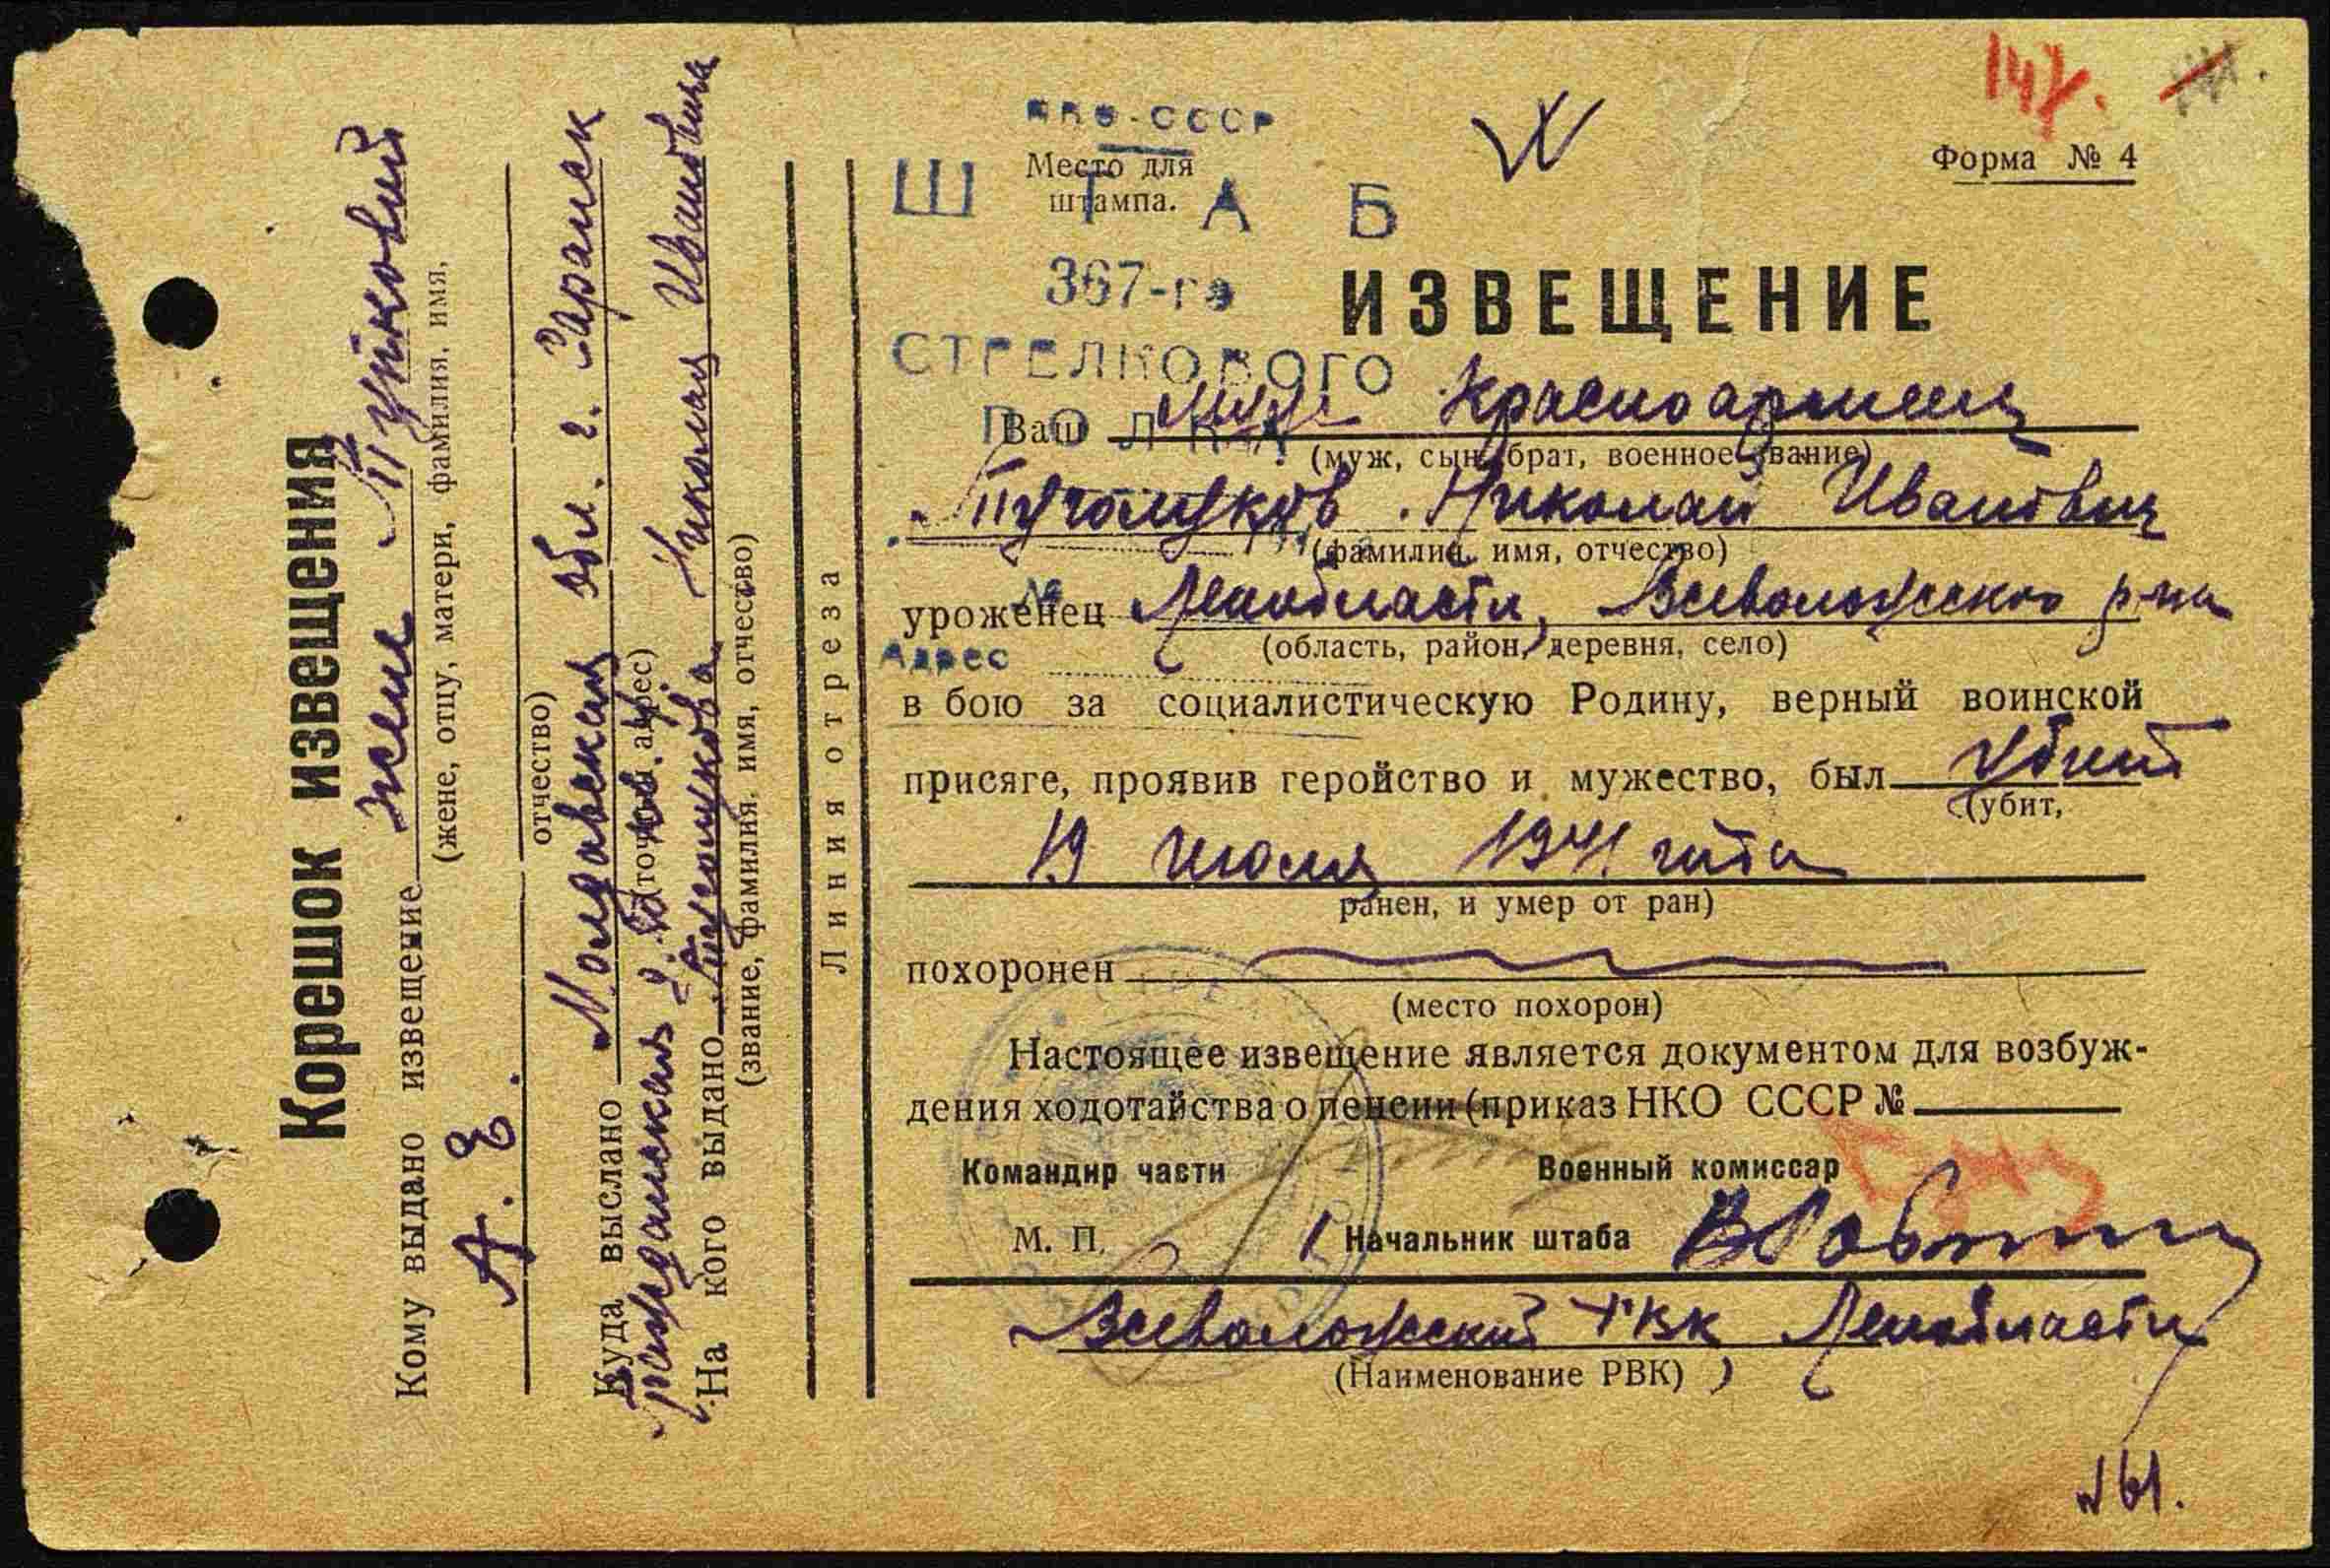 Корешок извещения
Кому выдано извещение жене
(жене, отцу, матери, фамилия, имя,
А. Е.
отчество)
Куда выслано обл. г. Саранск
(точный адрес)
гражданская
На кого выдано Николая Ивановича
(звание, фамилия, имя, отчество)
Линия отреза
НКО-СССР
Место для
штампа.
ШТАБ
367-го
СТРЕЛКОВОГО
ПОЛКА
147.
Форма № 4
ИЗВЕЩЕНИЕ
Ваш муж Красноармеец
(муж, сын, брат, военное звание)
Николай Иванович
(фамилия, имя, отчество)
№
уроженец Ленобласти, Всеволожского р-на
(область, район, деревня, село)
Адрес
в бою за социалистическую Родину, верный воинской
присяге, проявив геройство и мужество, был убит
(убит,
19 июля 1941 года
ранен, и умер от ран)
похоронен
(место похорон)
Настоящее извещение является документом для возбуж-
дения ходотайства о пенсии (приказ НКО СССР №
Командир части Военный комиссар
М. П. Начальник штаба
Всеволожский РВК Ленобласти
(Наименование РВК)
№61.